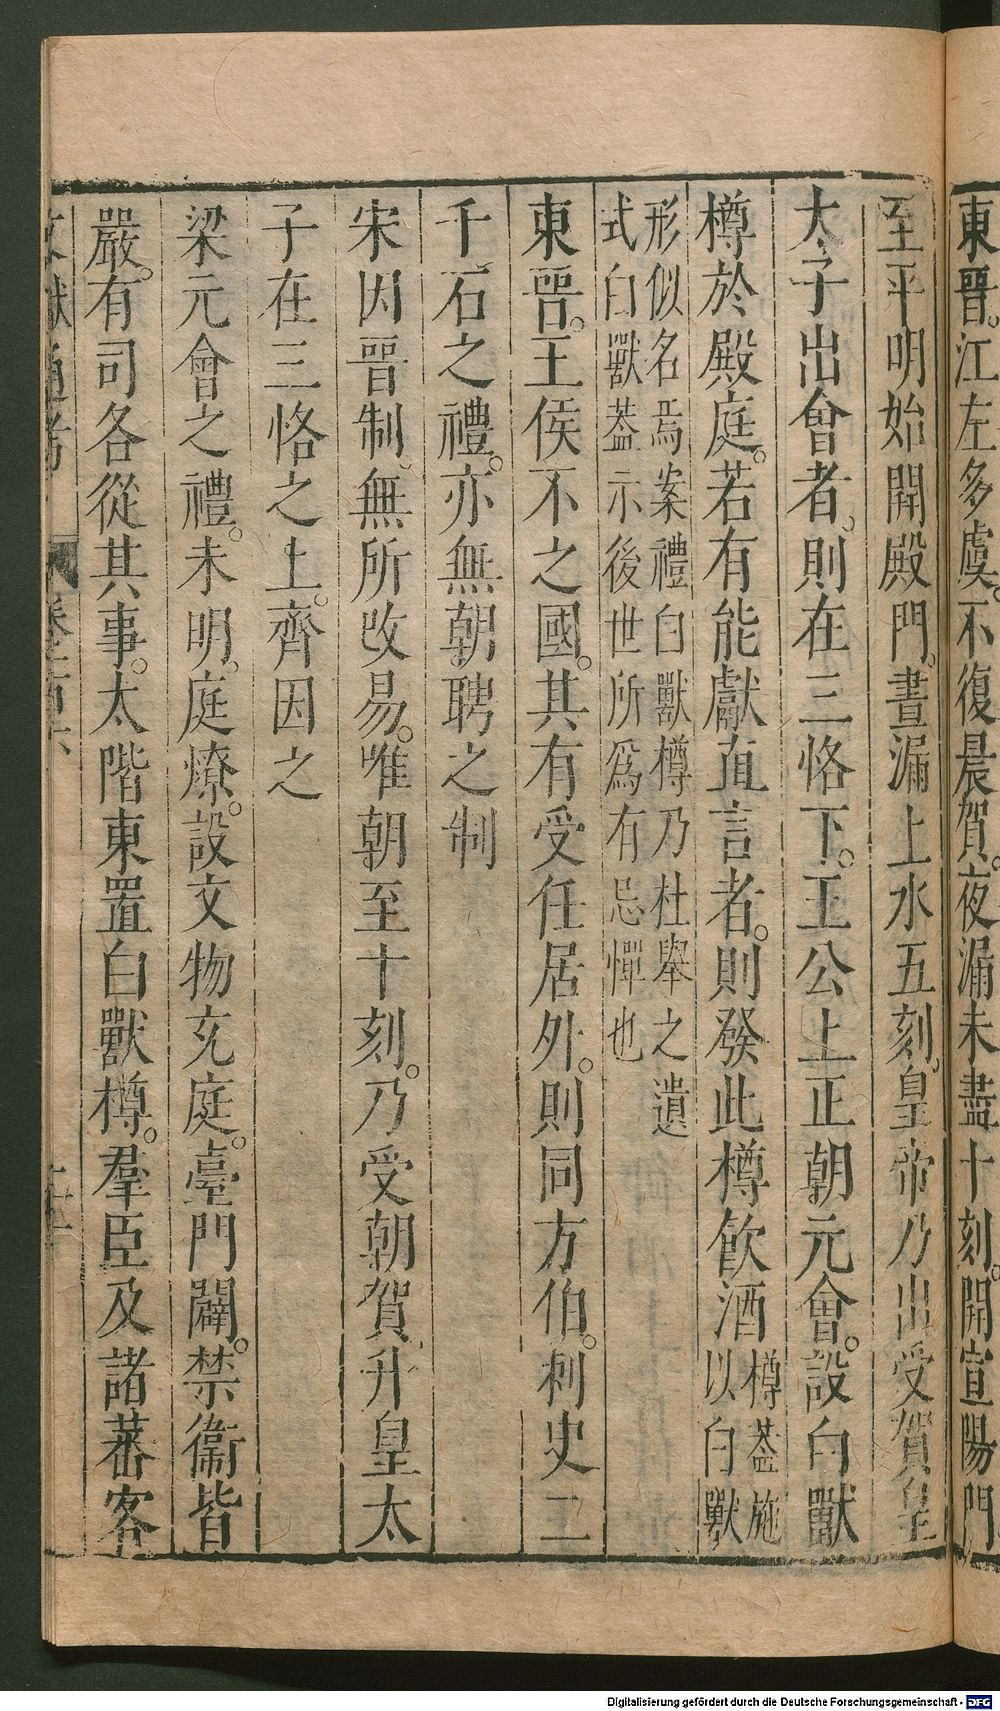 東晉。江左多虞。不復晨賀。夜漏未盡十刻。開宣陽門
至平明始開殿門。晝漏上水五刻。皇帝乃出受賀皇
太子出會者。則在三恪下。王公上正朝元會。設白獸
樽於殿庭。若有能獻直言者。則發此樽飲酒樽葢施以白獸
形似名焉案禮白獸樽乃杜舉之遺
式白獸葢示後世所爲有忌憚也
東晉。王侯不之國。其有受任居外。則同方伯。刺史二
千石之禮。亦無朝聘之制
宋因晉制。無所改易。唯朝至十刻。乃受朝賀。升皇太
子在三恪之上。齊因之
梁元會之禮。未明。庭燎。設文物充庭。臺門闢。禁衞皆
嚴。有司各從其事。太階東置白獸樽。羣臣及諸蕃客
文獻通考 卷之一百六
Digitalisierung gefördert durch die Deutsche Forschungsgemeinschaft - DFG